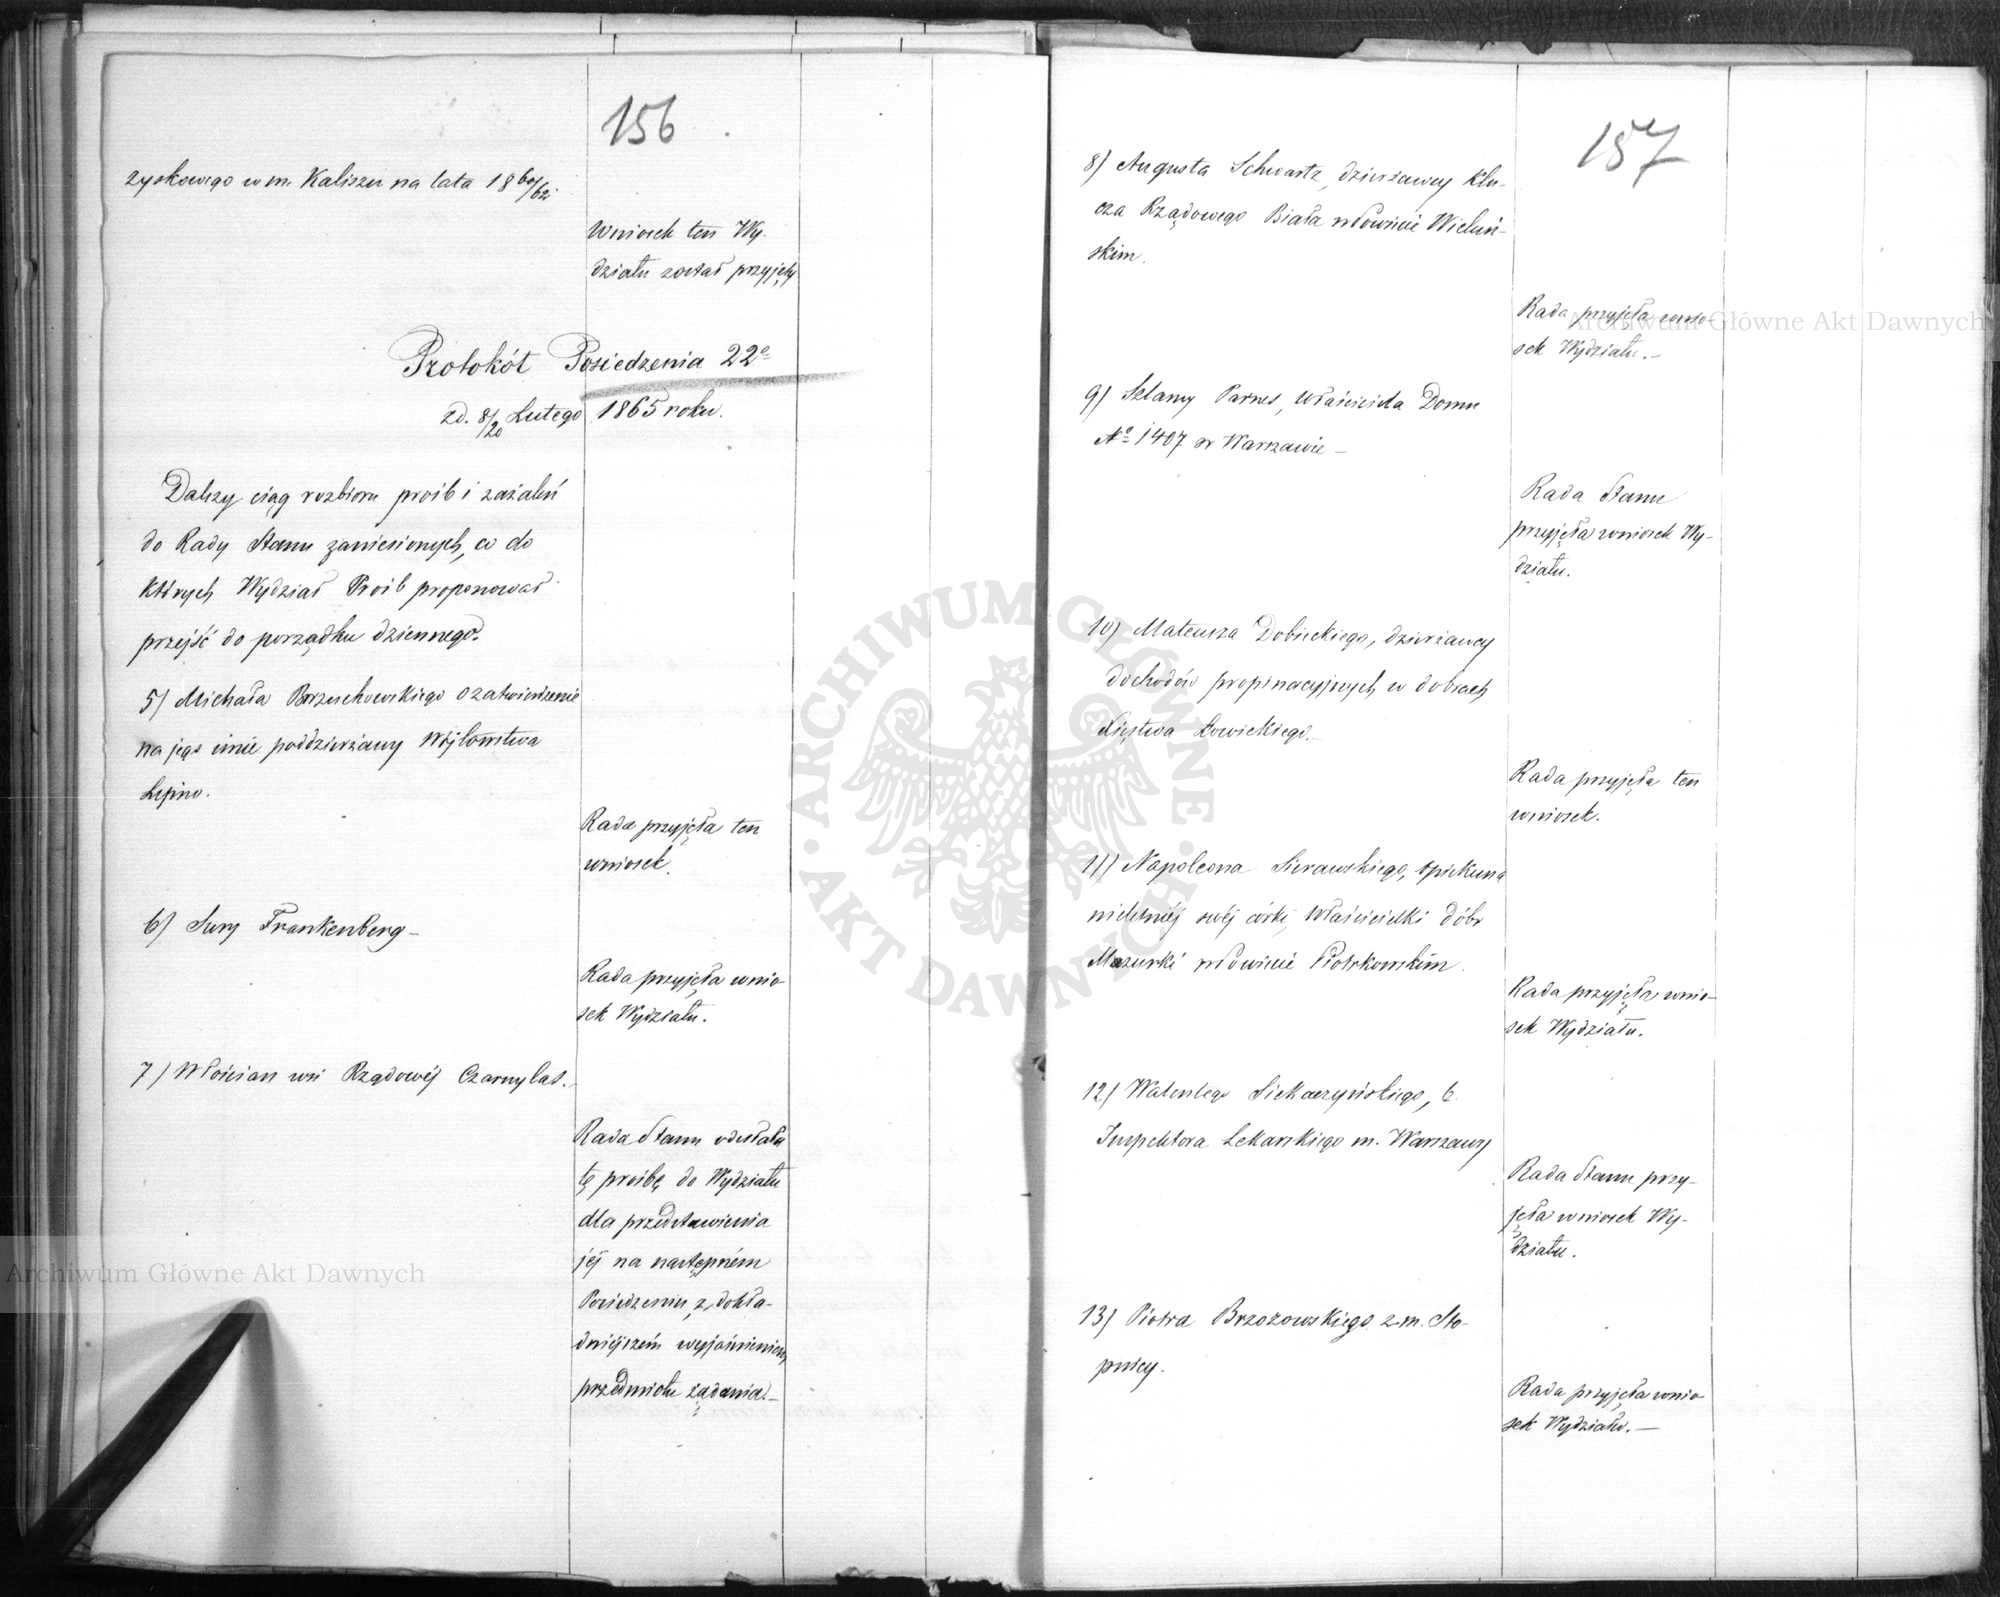 156
zyskowego w m. Kaliszu na lata 1860/62.
Wniosek ten Wy-
działu został przyjęty
Protokół Posiedzenia 22o
z d. 8/20 Lutego 1865 roku.
Dalszy ciąg rozbioru próśb i zażaleń
do Rady Stanu zaniesionych, co do
których Wydział Próśb proponował
przejść do porządku dziennego.
5) Michała Brzuchowskiego o zatwierdzenie
na jego imie poddzierżawy Wójtowstwa
Lipno.
Rada przyjęła ten
wniosek.
6) Sury Frankenberg –
Rada przyjęła wnio-
sek Wydziału.
7) Włościan wsi Rządowéj Czarnylas.
Rada Stanu odesłała
tę prośbę do Wydziału
dla przedstawienia
jéj na następném
Posiedzeniu z dokła-
dniejszém wyjaśnieniem
przedmiotu żądania. –
157
8) Augusta Schwartz, dzierżawcy Klu-
cza Rządowego Biała w Powiecie Wieluń-
skim.
Rada przyjęła wnio-
sek Wydziału. –
9) Szlamy Parnes, właściciela Domu
No 1407 w Warszawie –
Rada Stanu
przyjęła wniosek Wy-
działu.
10) Mateusza Dobieckiego, dzierżawcy
dochodów propinacyjnych w dobrach
Xięstwa Łowickiego. –
Rada przyjęła ten
wniosek.
11) Napoleona Sierawskiego, opiekuna
nieletniéj swéj córki, właścicielki dóbr
Mazurki w Powiecie Piotrkowskim.
Rada przyjęła wnio-
sek Wydziału.
12) Walentego Siekaczyńskiego, b.
Inspektora Lekarskiego m. Warszawy
Rada Stanu przy-
jęła wniosek Wy-
działu.
13) Piotra Brzozowskiego z m. Sto-
pnicy.
Rada przyjęła wnio-
sek Wydziału. –
Archiwum Główne Akt Dawnych
Archiwum Główne Akt Dawnych
ARCHIWUM GŁÓWNE AKT DAWNYCH